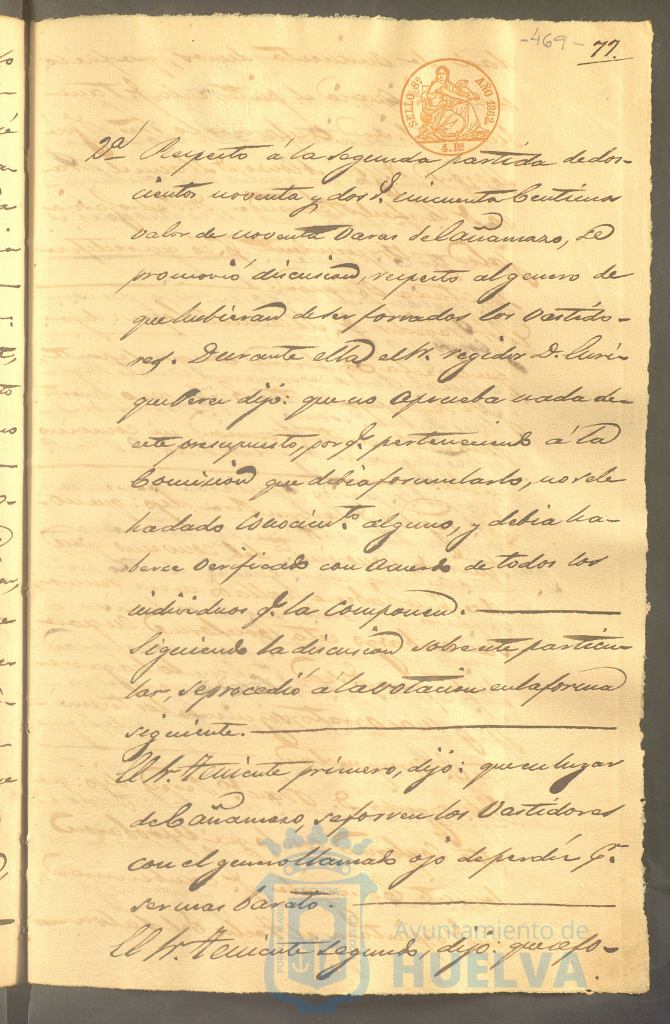 -469- 77.
SELLO 8º AÑO 1862.
4. Rs
2ª Respecto á la segunda partida de dos-
cientos noventa y dos rs. cincuenta Centimos
valor de noventa varas de Cañamazo, se
promovió discusion, respecto al genero de
que hubieran de ser forrados los Vastido-
res. Durante esta el Sr. regidor D. Enri-
que Perez dijo: que no aprueba nada de
este presupuesto, por q. perteneciendo á la
Comision que debia formularlo, no se le
ha dado Conocimto. alguno, y debia ha-
berse verificado con acuerdo de todos los
individuos q. la componen.
Siguiendo la discusion sobre este particu-
lar, se procedió á la votacion en la forma
siguiente.
El Sr. Teniente primero, dijo: que en lugar
de Cañamazo, se forren los Vastidores
con el genero llamado ojo de perdíz pr.
ser mas barato.
El Sr. Teniente segundo, dijo: que se fo-
Ayuntamiento de
HUELVA